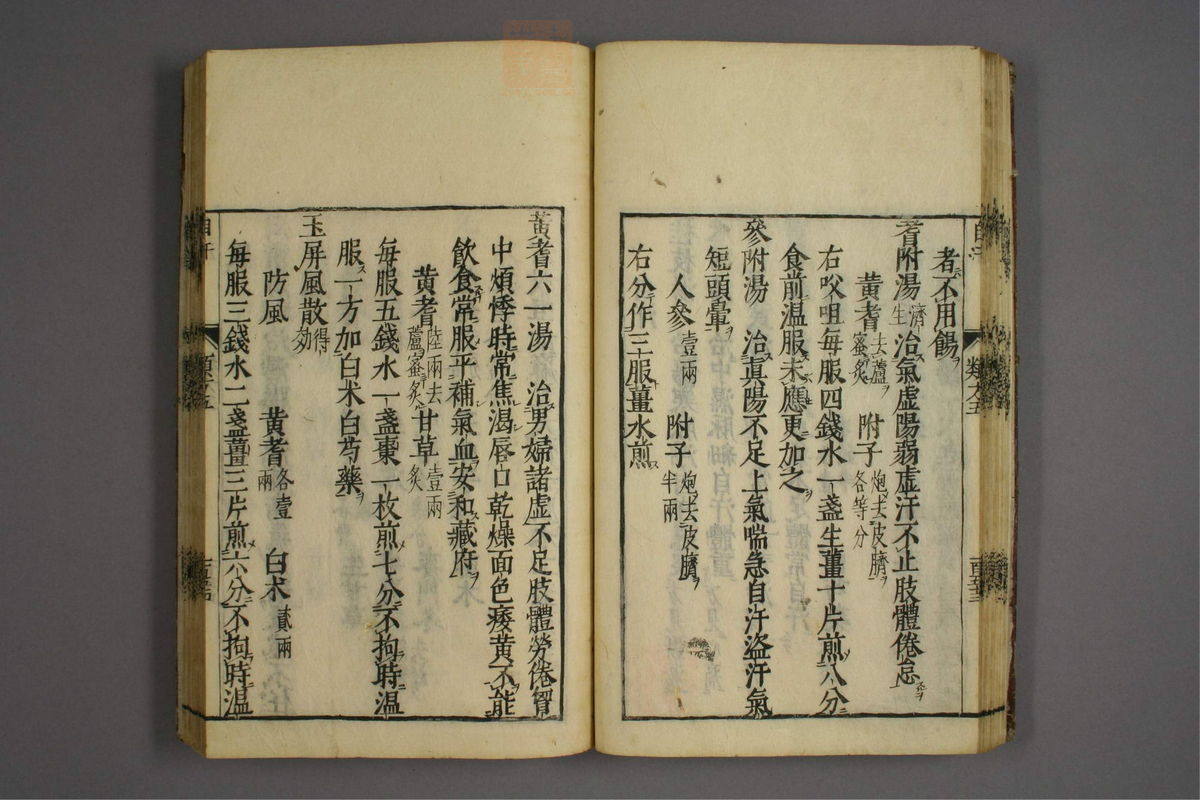 者不用餳
耆附湯濟生治氣虛陽弱虛汗不止肢體倦怠
黃耆去蘆蜜炙 附子炮去皮臍各等分
右㕮咀每服四錢水一盞生薑十片煎八分
食前温服未應更加之
參附湯 治眞陽不足上氣喘急自汗盜汗氣
短頭暈
人參壹兩 附子炮去皮臍半兩
右分作三服薑水煎
黃耆六一湯 治男婦諸虛不足肢體勞倦胷
中煩悸時常焦渴唇口乾燥面色痿黃不能
飲食常服平補氣血安和藏府
黃耆陸兩去蘆蜜炙 甘草壹兩炙
每服五錢水一盞棗一枚煎七分不拘時温
服一方加白术白芍藥
玉屏風散得効
防風 黃耆各壹兩 白术貳兩
每服三錢水二盞薑三片煎六分不拘時温
自汗